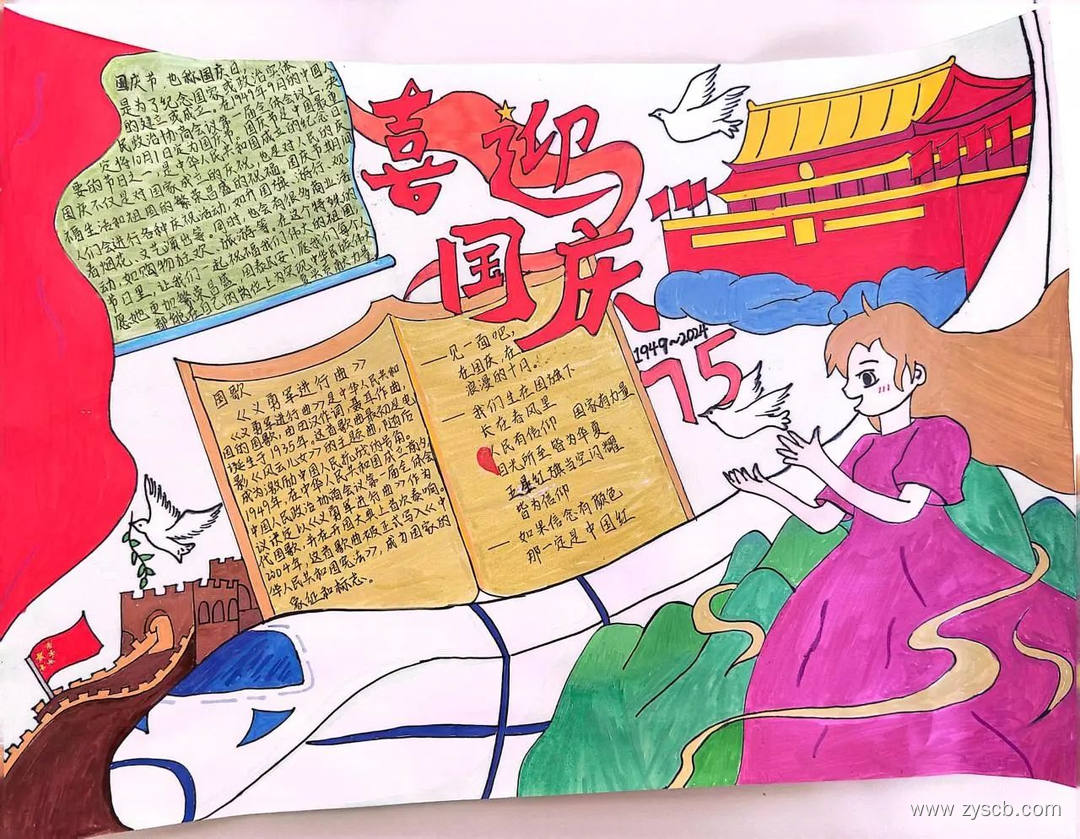 国庆节 也称国庆日
是为了纪念国家或政治实体
的建立或成立 在1949年9月的中国人
民政治协商会议第一届全体会议上,
定将10月1日定为国庆节。国庆节是中国最重
要的节日之一,是中华人民共和国成立的纪念日
国庆不仅是对国家成立的庆祝,也是对人民的
生活和祖国的繁荣昌盛的祝福。国庆节期间
人们会进行各种庆祝活动,如升国旗、游行、观
看烟花、文艺演出等。同时,也会有很多商业活
动,如购物狂欢、旅游等。在这个特殊的
节日里,让我们一起祝福我们伟大的祖国
愿她更加繁荣昌盛、国泰民安,愿我们每个人
都能在自己的岗位上为实现中华民族伟大
复兴贡献力量
喜迎
国庆
1949~2024
75
国歌
《义勇军进行曲》
《义勇军进行曲》是中华人民共和
国的国歌,由田汉作词,聂耳作曲,
诞生于1935年,这首歌曲最初是电
影《风云儿女》的主题曲,随后
成为激励中国人民抗战的号角。
1949年,在中华人民共和国成立前夕
中国人民政治协商会议第一届全体会
议决定以《义勇军进行曲》作为
代国歌,并在开国大典上首次奏响。
2004年,这首歌曲被正式写入《中
华人民共和国宪法》,成为国家的
象征和标志。
一见一面吧,
在国庆,在
浪漫的十月.!
一 我们生在国旗下
长在春风里
人民有信仰 国家有力量
目光所至皆为华夏
五星红旗当空闪耀
皆为信仰
一 如果信念有颜色
那一定是中国红
www.zyscb.com